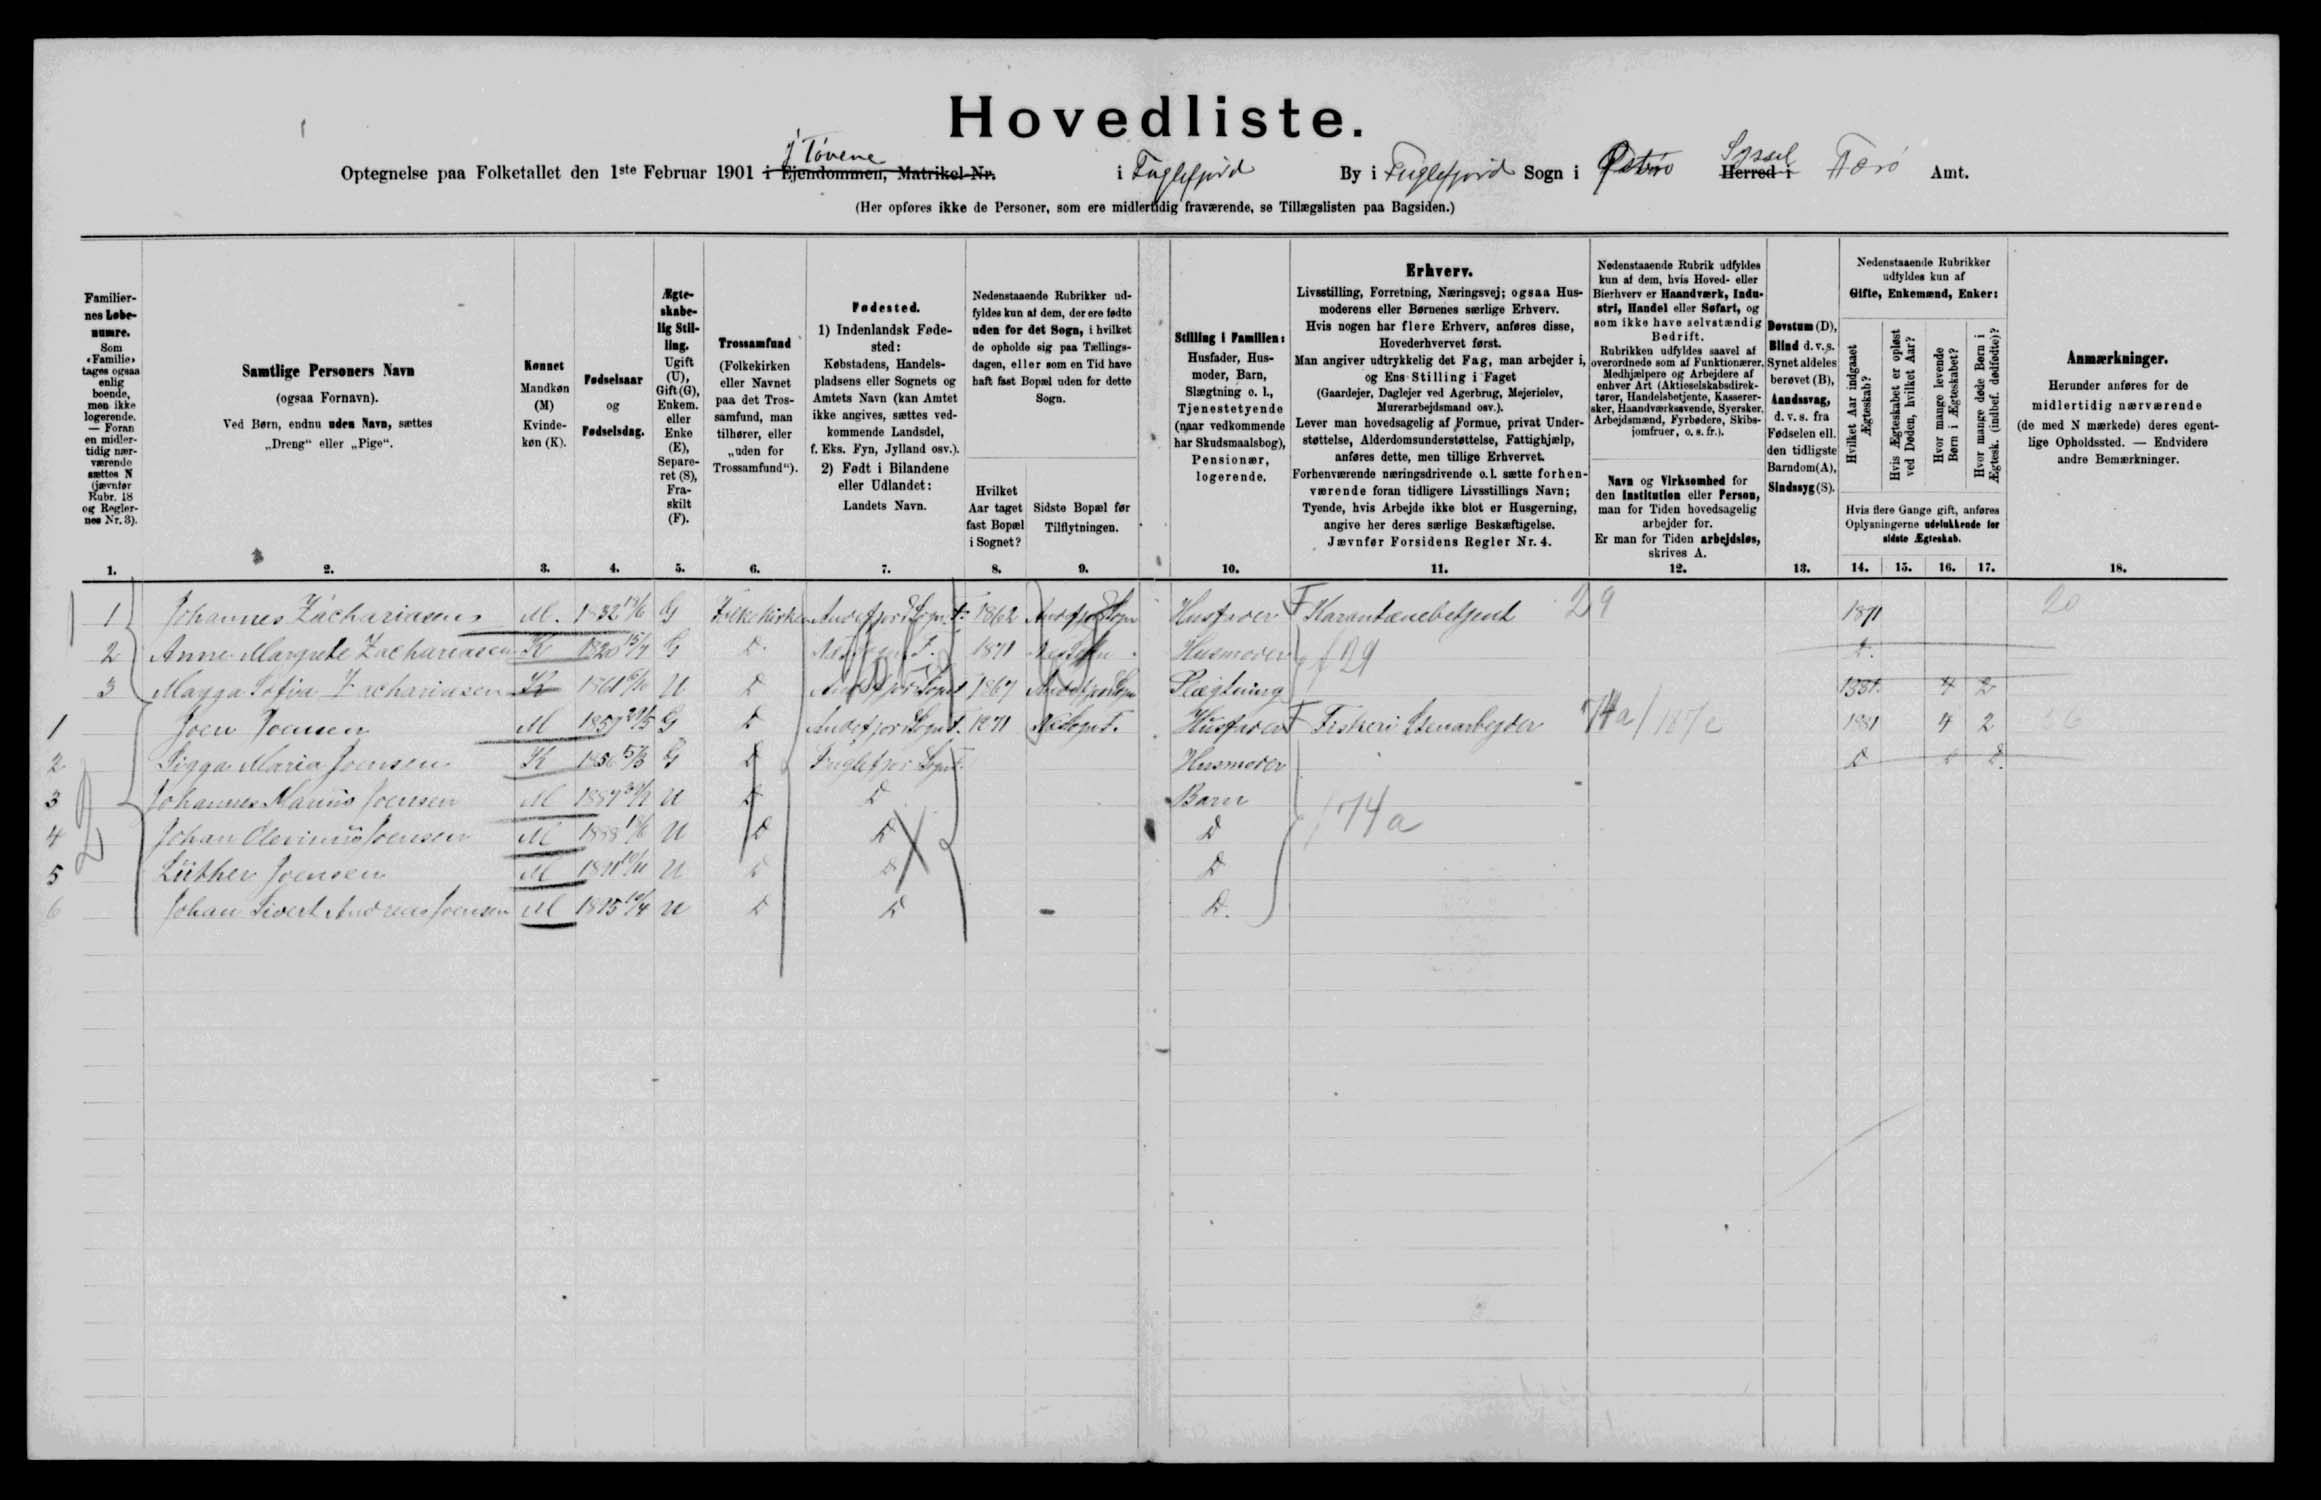 Hovedliste.
Optegnelse paa Folketallet den 1ste Februar 1901 i Ejendommen, Matrikel-Nr. i Tóvene i Fuglefjord By i Fuglefjord Sogn i Østrø Herred i Syssel Færø Amt.
(Her opføres ikke de Personer, som ere midlertidig fraværende, se Tillægslisten paa Bagsiden.)
Familiernes Løbenumre.
Som «Familie» tages ogsaa enlig boende, men ikke logerende. — Foran en midlertidig nærværende sættes N (jævnfør Rubr. 18 og Reglernes Nr. 3).
Samtlige Personers Navn
(ogsaa Fornavn).
Ved Børn, endnu uden Navn, sættes
„Dreng“ eller „Pige“.
Kønnet
Mandkøn (M)
Kvindekøn (K).
Fødselsaar
og
Fødselsdag.
Ægteskabelig Stilling.
Ugift (U), Gift (G), Enkem. eller Enke (E), Separeret (S), Fraskilt (F).
Trossamfund
(Folkekirken eller Navnet paa det Trossamfund, man tilhører, eller „uden for Trossamfund“).
Fødested.
1) Indenlandsk Fødested:
Købstadens, Handelspladsens eller Sognets og Amtets Navn (kan Amtet ikke angives, sættes vedkommende Landsdel, f. Eks. Fyn, Jylland osv.).
2) Født i Bilandene eller Udlandet:
Landets Navn.
Nedenstaaende Rubrikker udfyldes kun af dem, der ere fødte uden for det Sogn, i hvilket de opholde sig paa Tællingsdagen, eller som en Tid have haft fast Bopæl uden for dette Sogn.
Hvilket Aar taget fast Bopæl i Sognet?
Sidste Bopæl før Tilflytningen.
Stilling i Familien:
Husfader, Husmoder, Barn, Slægtning o. l., Tjenestetyende (naar vedkommende har Skudsmaalsbog), Pensionær, logerende.
Erhverv.
Livsstilling, Forretning, Næringsvej; ogsaa Husmoderens eller Børnenes særlige Erhverv.
Hvis nogen har flere Erhverv, anføres disse, Hovederhvervet først.
Man angiver udtrykkelig det Fag, man arbejder i, og Ens Stilling i Faget
(Gaardejer, Daglejer ved Agerbrug, Mejerielev, Murerarbejdsmand osv.).
Lever man hovedsagelig af Formue, privat Understøttelse, Alderdomsunderstøttelse, Fattighjælp, anføres dette, men tillige Erhvervet.
Forhenværende næringsdrivende o. l. sætte forhenværende foran tidligere Livsstillings Navn; Tyende, hvis Arbejde ikke blot er Husgerning, angive her deres særlige Beskæftigelse.
Jævnfør Forsidens Regler Nr. 4.
Nedenstaaende Rubrik udfyldes kun af dem, hvis Hoved- eller Bierhverv er Haandværk, Industri, Handel eller Søfart, og som ikke have selvstændig Bedrift.
Rubrikken udfyldes saavel af overordnede som af Funktionærer, Medhjælpere og Arbejdere af enhver Art (Aktieselskabsdirektører, Handelsbetjente, Kasserersker, Haandværkssvende, Syersker, Arbejdsmænd, Fyrbødere, Skibsjomfruer, o. s. fr.).
Navn og Virksomhed for den Institution eller Person, man for Tiden hovedsagelig arbejder for.
Er man for Tiden arbejdsløs, skrives A.
Døvstum (D), Blind d. v. s. Synet aldeles berøvet (B), Aandssvag, d. v. s. fra Fødselen ell. den tidligste Barndom (A), Sindssyg (S).
Nedenstaaende Rubrikker udfyldes kun af
Gifte, Enkemænd, Enker:
Hvilket Aar indgaaet Ægteskab?
Hvis Ægteskabet er opløst ved Døden, hvilket Aar?
Hvor mange levende Børn i Ægteskabet?
Hvor mange døde Børn i Ægtesk. (indbef. dødfødte)?
Hvis flere Gange gift, anføres Oplysningerne udelukkende for sidste Ægteskab.
Anmærkninger.
Herunder anføres for de midlertidig nærværende (de med N mærkede) deres egentlige Opholdssted. — Endvidere andre Bemærkninger.
1. 2. 3. 4. 5. 6. 7. 8. 9. 10. 11. 12. 13. 14. 15. 16. 17. 18.
1 Johannes Zachariasen M. 1832 G Folkekirken Andefjord Sogn F. 1862 Andefjord Sogn Husfader F Karantænebetjent 29 1871 20
2 Anne Margrete Zachariasen K 1820 G D. 1871 Husmoder f 29 D.
3 Magga Sofia Zachariasen K 1861 U D Andefjord Sogn 1867 Andefjord Sogn Slægtning 1881 4 2
1 Joen Joensen M 1857 21/5 G D Andefjord Sogn F. 1871 Næs Sogn F. Husfader F Fiskeri Stenarbejder 74a/187c 1881 4 2
2 Sigga Maria Joensen K 1856 5/8 G D Fuglefjord Sogn F. Husmoder D D D.
3 Johannes Marius Joensen M 1887 U D D Barn
4 Johan Olevinus Joensen M 1888 U D D D f 74a
5 Lüther Joensen M 1891 U D D D
6 Johan Sivert Andreas Joensen M 1895 U D D D.